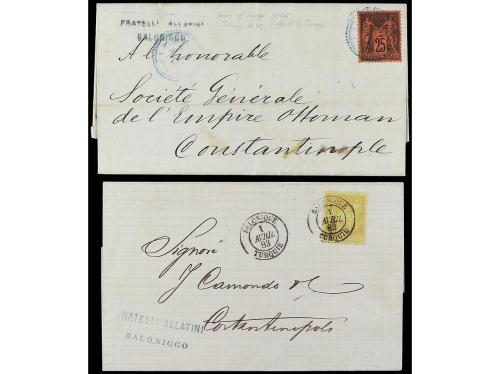 FRATELLI ALLATINI
SALONICCO
25
A l'honorable
Société Générale
de l'Empire Ottoman
Constantinople
SALONIQUE
1
AVRIL
83
TURQUIE
SALONIQUE
1
AVRIL
83
TURQUIE
Signori
J Camondo &c
Costantinopoli
FRATELLI ALLATINI
SALONICCO